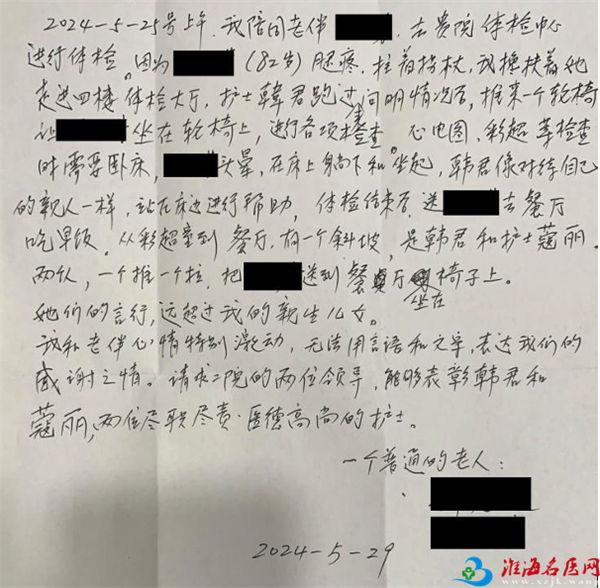 2024-5-25号上午,我陪同老伴 去贵院体检中心
进行体检。因为 (82岁)腿疼,拄着拐杖,我搀扶着她
走进四楼体检大厅,护士韩君跑过来问明情况后,推来一个软椅
让 坐在软椅上,进行各项检查。心电图,彩超等检查
时需要卧床, 头晕,在床上躺下和坐起,韩君像对待自己
的亲人一样,站在床边进行帮助,体检结束后,送 去餐厅
吃早饭。从彩超室到餐厅,有一个斜坡,是韩君和护士蔻丽
两人,一个推一个拉,把 送到餐厅坐在椅子上。
她们的言行,远超过我的亲生儿女。
我和老伴心情特别激动,无法用言语和文字,表达我们的
感谢之情。请求二院的两位领导,能够表彰韩君和
蔻丽,两位尽职尽责·医德高尚的护士。
一个普通的老人:
2024-5-29
淮海名医网
www.xzjk.wang